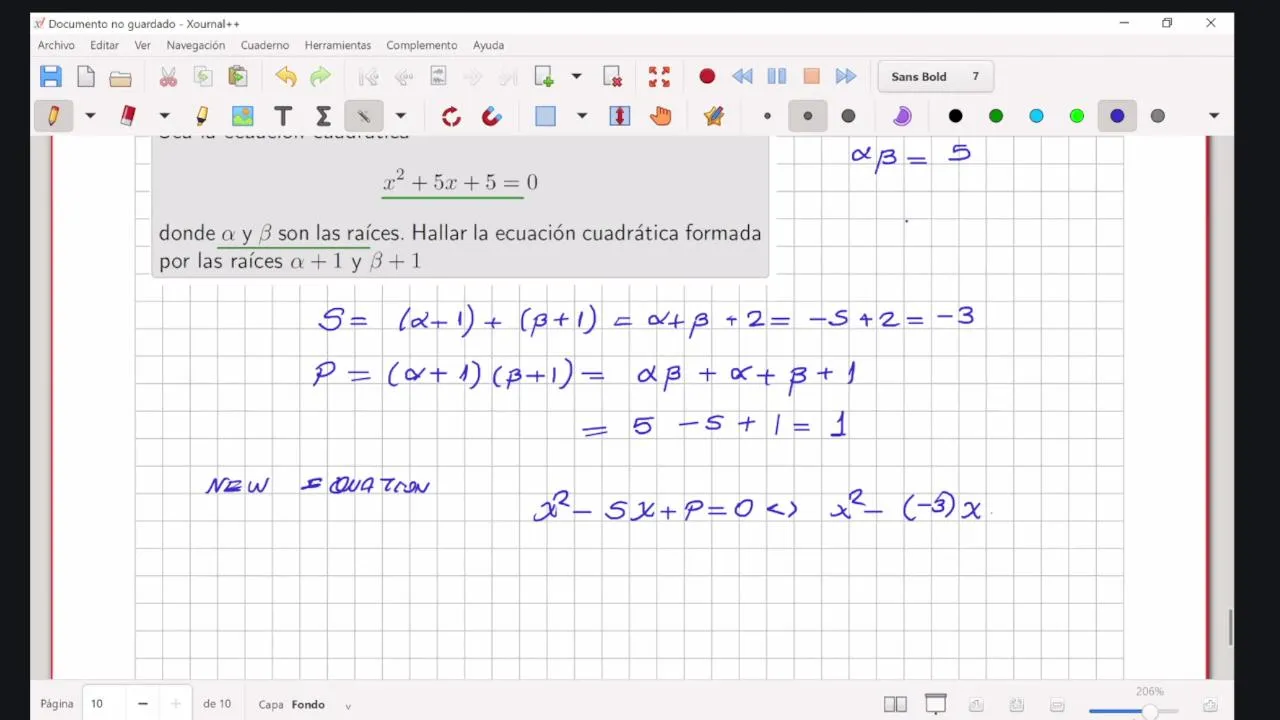 Documento no guardado - Xournal++
Archivo Editar Ver Navegación Cuaderno Herramientas Complemento Ayuda
Sans Bold 7
Sea la ecuación cuadrática
αβ = 5
x² + 5x + 5 = 0
donde α y β son las raíces. Hallar la ecuación cuadrática formada
por las raíces α + 1 y β + 1
S = (α+1) + (β+1) = α+β+2 = -5+2 = -3
P = (α+1)(β+1) = αβ + α+β+1
= 5 -5 + 1 = 1
NEW EQUATION
x² - Sx + P = 0 <> x² - (-3)x
Página 10 de 10 Capa Fondo
206%